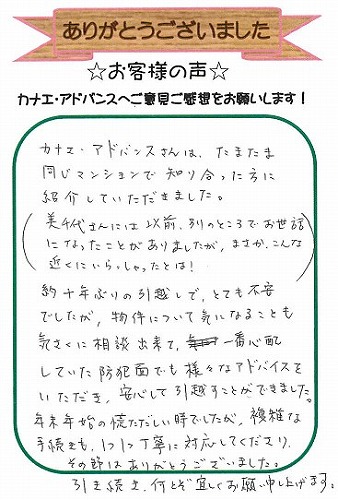 ありがとうございました
☆お客様の声☆
カナエ・アドバンスへご意見ご感想をお願いします!
カナエ・アドバンスさんは、たまたま
同じマンションで知り合った方に
紹介していただきました。
(美千代さんには以前、別のところでお世話
になったことがありましたが、まさか、こんな
近くにいらっしゃったとは!)
約十年ぶりの引越しで、とても不安
でしたが、物件について気になることも
気さくに相談出来て、一番心配
していた防犯面でも様々なアドバイスを
いただき、安心して引越すことができました。
年末年始の慌ただしい時でしたが、複雑な
手続きも、1つ1つ丁寧に対応してくださり、
その節はありがとうございました。
引き続き、何とぞ宜しくお願い申し上げます。